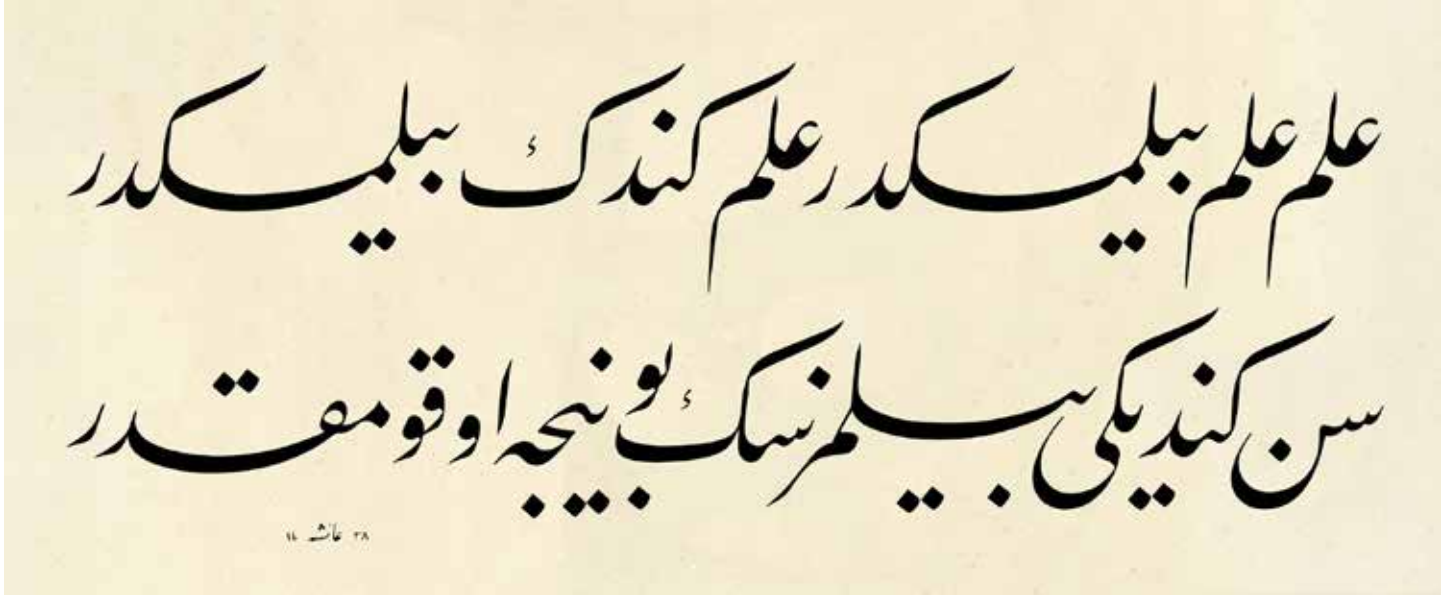 علم علم بيلمكدر علم كندك بيلمكدر
سن كنديكى بيلمزسك بو نيجه اوقومقدر
٣٨ عائشه ١٤